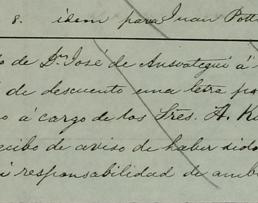 8. idem para Juan Pott
o de Dn José de Ansoategui á
de descuento una letra po
o á cargo de los Sres. A. Ru
ecibo de aviso de haber sido
á responsabilidad de amb